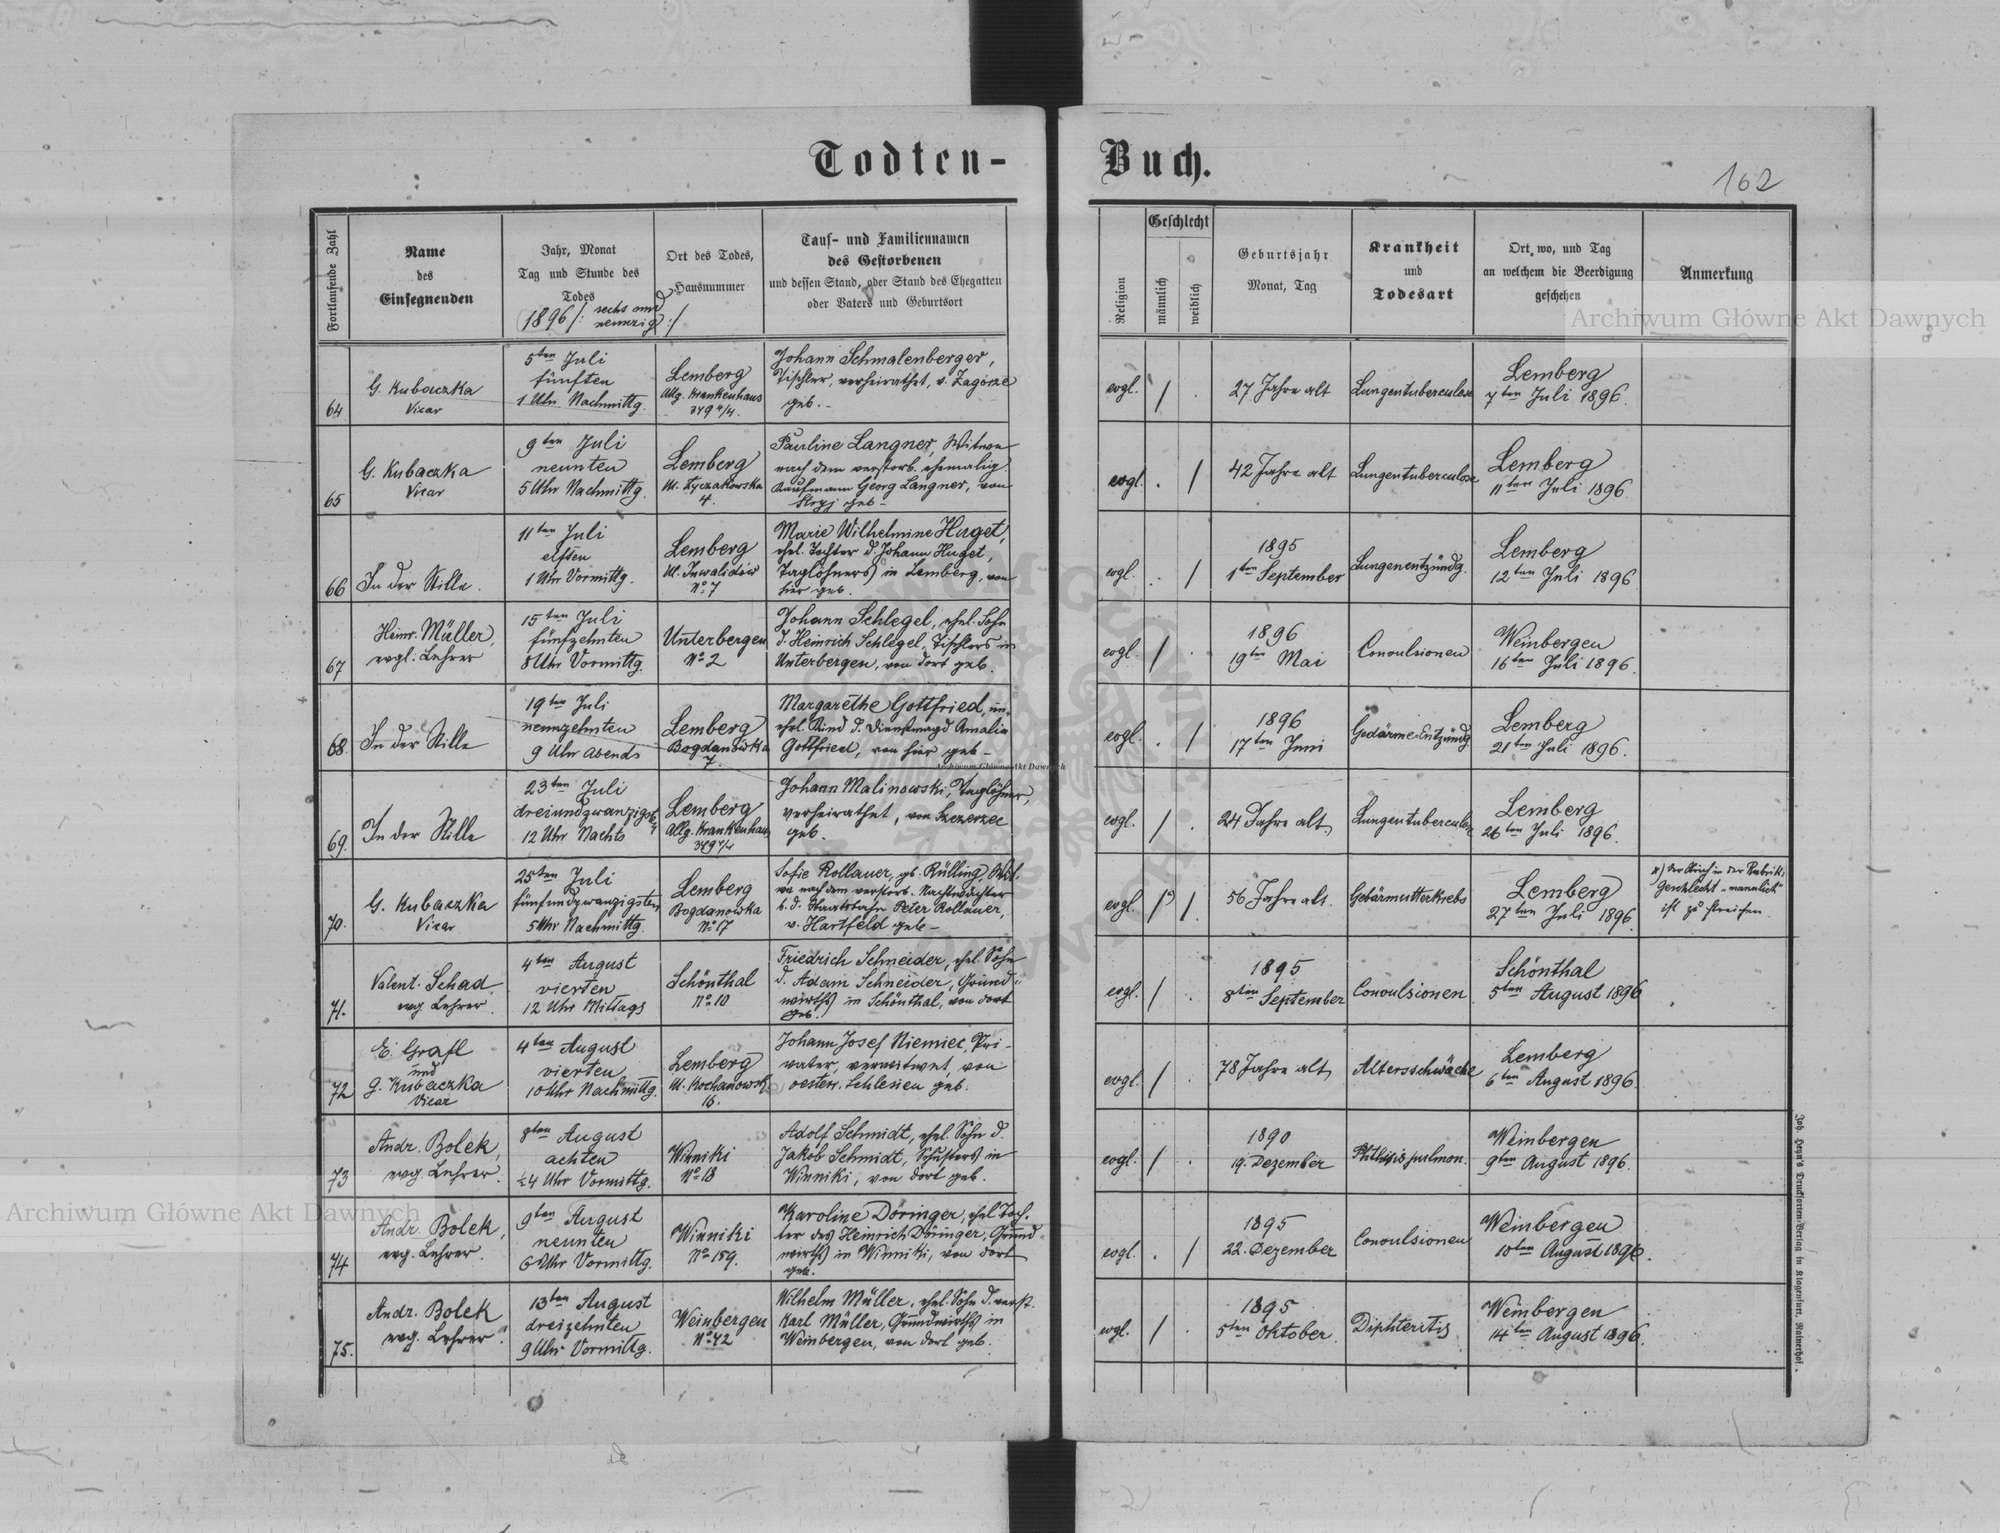 Todten-Buch.
162
Fortlaufende Zahl
Name
des
Einsegnenden
Jahr, Monat
Tag und Stunde des
Todes
1896 /: sechs und
neunzig :/
Ort des Todes,
Hausnummer
Tauf- und Familiennamen
des Gestorbenen
und dessen Stand, oder Stand des Ehegatten
oder Vaters und Geburtsort
Religion
Geschlecht
männlich
weiblich
Geburtsjahr
Monat, Tag
Krankheit
und
Todesart
Ort, wo, und Tag
an welchem die Beerdigung
geschehen
Anmerkung
64
G. Kubaczka
Vicar
5ten Juli
fünften
1 Uhr Nachmittg.
Lemberg
Allg. Krankenhaus
349 4/4.
Johann Schmalenberger,
Tischler, verheirathet, v. Zagórze
geb. -
evgl.
/
27 Jahre alt
Lungentuberculose
Lemberg
7ten Juli 1896.
65
G. Kubaczka
Vicar
9ten Juli
neunten
5 Uhr Nachmittg.
Lemberg
Ul. Łyczakowska
4.
Pauline Langner, Witwe
nach dem verstorb. ehemalig
Kaufmann Georg Langner, von
Stryj geb -
evgl.
/
42 Jahre alt
Lungentuberculose
Lemberg
11ten Juli 1896.
66
In der Stille.
11ten Juli
elften
1 Uhr Vormittg.
Lemberg
Ul. Inwalidów
No 7
Marie Wilhelmine Huget,
ehel. Tochter d. Johann Huget,
Taglöhners in Lemberg, von
hier geb.
evgl.
/
1895
1ten September
Lungenentzündg.
Lemberg
12ten Juli 1896
67
Heinr. Müller,
evgl. Lehrer
15ten Juli
fünfzehnten
8 Uhr Vormittg.
Unterbergen
No 2
Johann Schlegel, ehel. Sohn
d. Heinrich Schlegel, Tischlers in
Unterbergen, von dort geb.
evgl.
/
1896
19ten Mai
Convulsionen
Weinbergen
16ten Juli 1896.
68
In der Stille
19ten Juli
neunzehnten
9 Uhr Abends
Lemberg
Bogdanówka
7.
Margarethe Gottfried, un-
ehel. Kind d. Dienstmagd Amalie
Gottfried, von hier geb -
evgl.
/
1896
17ten Juni
Gedärme-Entzündg
Lemberg
21ten Juli 1896.
69.
In der Stille
23ten Juli
dreiundzwanzigsten
12 Uhr Nachts
Lemberg
Allg. Krankenhaus
349 4/4
Johann Malinowski, Taglöhner,
verheirathet, von Szczerzec
geb.
evgl.
/
24 Jahre alt
Lungentuberculose
Lemberg
26ten Juli 1896.
70.
G. Kubaczka
Vicar
25ten Juli
fünfundzwanzigsten
5 Uhr Nachmittg.
Lemberg
Bogdanówka
No 17
Sofie Rollauer, gb. Rülling, Wit-
we nach dem verstorb. Nachtwächter
b. d. Staatsbahn Peter Rollauer,
v. Hartfeld geb -
evgl.
/ x)
/
56 Jahre alt.
Gebärmutterkrebs
Lemberg
27ten Juli 1896
x) der Strich in der Rubrik:
Geschlecht "männlich"
ist zu streichen.
71.
Valent. Schad,
evg. Lehrer.
4ten August
vierten
12 Uhr Mittags
Schönthal
No 10
Friedrich Schneider, ehel. Sohn
d. Adam Schneider, Grund-
wirths in Schönthal, von dort
geb.
evgl.
/
1895
8ten September
Convulsionen
Schönthal
5ten August 1896
72
E. Grafl
und
G. Kubaczka
Vicar
4ten August
vierten
10 Uhr Nachmittg.
Lemberg
Ul. Kochanowsk
16.
Johann Josef Niemiec, Pri-
vater, verwitwet, von
oesterr. Schlesien geb.
evgl.
/
78 Jahre alt
Altersschwäche
Lemberg
6ten August 1896
73
Andr. Bolek,
evg. Lehrer.
8ten August
achten
½4 Uhr Vormittg.
Winniki
No 18
Adolf Schmidt, ehel. Sohn d.
Jakob Schmidt, Schusters in
Winniki, von dort geb.
evgl.
/
1890
19. Dezember
Phthisis pulmon.
Weinbergen
9ten August 1896.
74
Andr. Bolek,
evg. Lehrer.
9ten August
neunten
6 Uhr Vormittg.
Winniki
No 159.
Karoline Döringer, ehel Toch-
ter des Heinrich Döringer, Grund-
wirths in Winniki, von dort
geb.
evgl.
/
1895
22. Dezember
Convulsionen
Weinbergen
10ten August 1896.
75.
Andr. Bolek
evg. Lehrer.
13ten August
dreizehnten
9 Uhr Vormittg.
Weinbergen
No 42
Wilhelm Müller, ehel. Sohn d. verst.
Karl Müller, Grundwirths in
Weinbergen, von dort geb.
evgl.
/
1895
5ten Oktober
Diphteritis
Weinbergen
14ten August 1896.
Joh. Heyn's Drucksorten-Verlag in Klagenfurt, Rainerhof.
Archiwum Główne Akt Dawnych
Archiwum Główne Akt Dawnych
Archiwum Główne Akt Dawnych